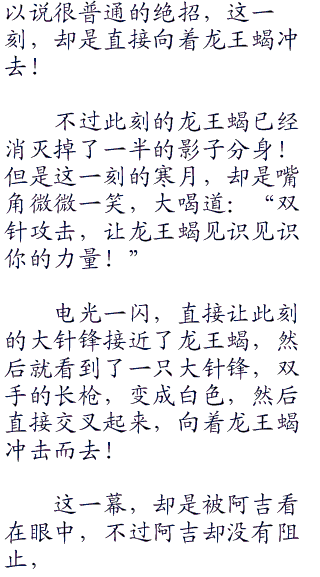 以说很普通的绝招，这一
刻，却是直接向着龙王蝎冲
去！
不过此刻的龙王蝎已经
消灭掉了一半的影子分身！
但是这一刻的寒月，却是嘴
角微微一笑，大喝道：“双
针攻击，让龙王蝎见识见识
你的力量！”
电光一闪，直接让此刻
的大针锋接近了龙王蝎，然
后就看到了一只大针锋，双
手的长枪，变成白色，然后
直接交叉起来，向着龙王蝎
冲击而去！
这一幕，却是被阿吉看
在眼中，不过阿吉却没有阻
止，